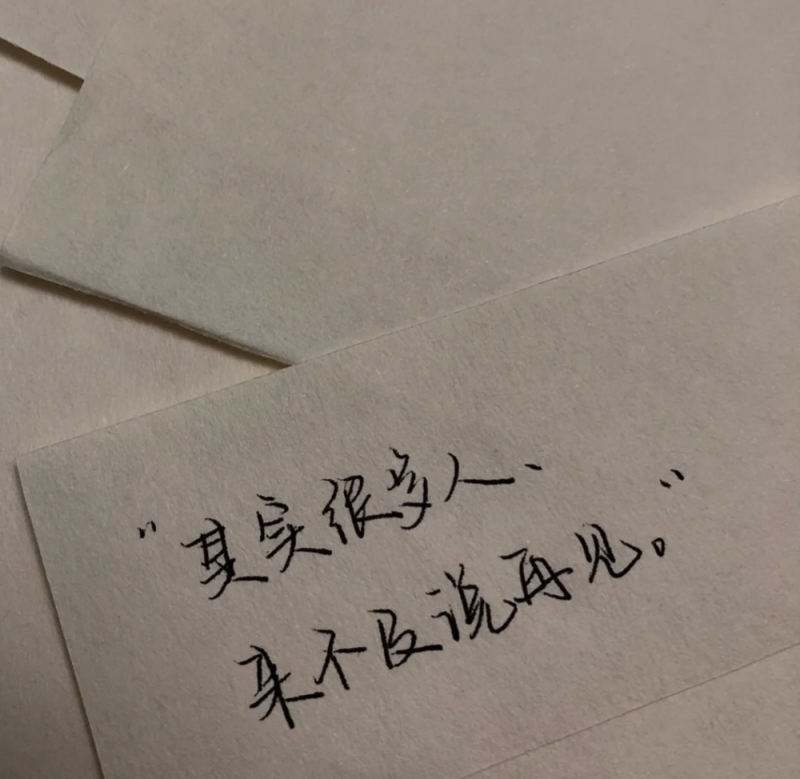 “其实很多人、
来不及说再见。”